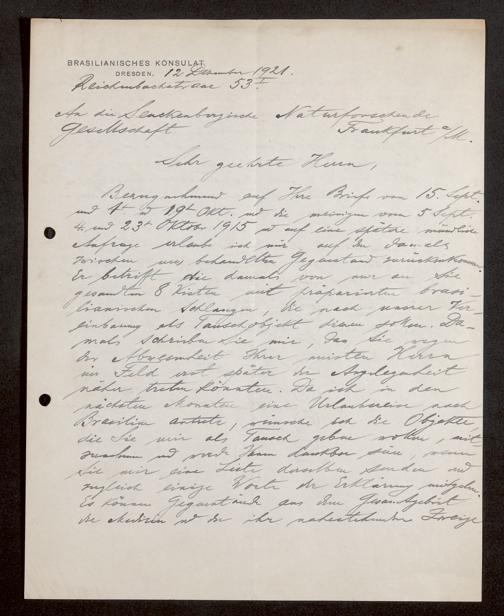 BRASILIANISCHES KONSULAT.
DRESDEN. 12 Dezember 1921.
Reichenbachstrasse 53 I
An die Senckenbergische Naturforschende
Gesellschaft Frankfurt a/M.
Sehr geehrte Herrn,
Bezugnehmend auf Ihre Briefe vom 15. Sept.
und 4t u 19t Okt. und die meinigen vom 5 Sept.
4. und 23t Oktober 1915 u auf eine spätere mündliche
Anfrage erlaube ich mir, auf den damals
zwischen uns behandelten Gegenstand zurückzukommen.
Er betrifft die damals von mir an Sie
gesandten 8 Kisten mit präparierten brasi-
lianischen Schlangen, die nach unserer Ver-
einbarung als Tauschobjekt dienen sollen. Da-
mals schrieben Sie mir, das Sie wegen
der Abwesenheit Ihrer meisten Herrn
im Feld erst später der Angelegenheit
näher treten könnten. Da ich in den
nächsten Monaten eine Urlaubsreise nach
Brasilien antrete, wünsche ich die Objekte,
die Sie mir als Tausch geben wollen, mit
zunehmen und werde Ihnen dankbar sein, wenn
Sie mir eine Liste derselben senden und
zugleich einige Worte der Erklärung mitgeben.
Es können Gegenstände aus dem Gebiet
der Medizin und der ihr nahestehenden Zweige